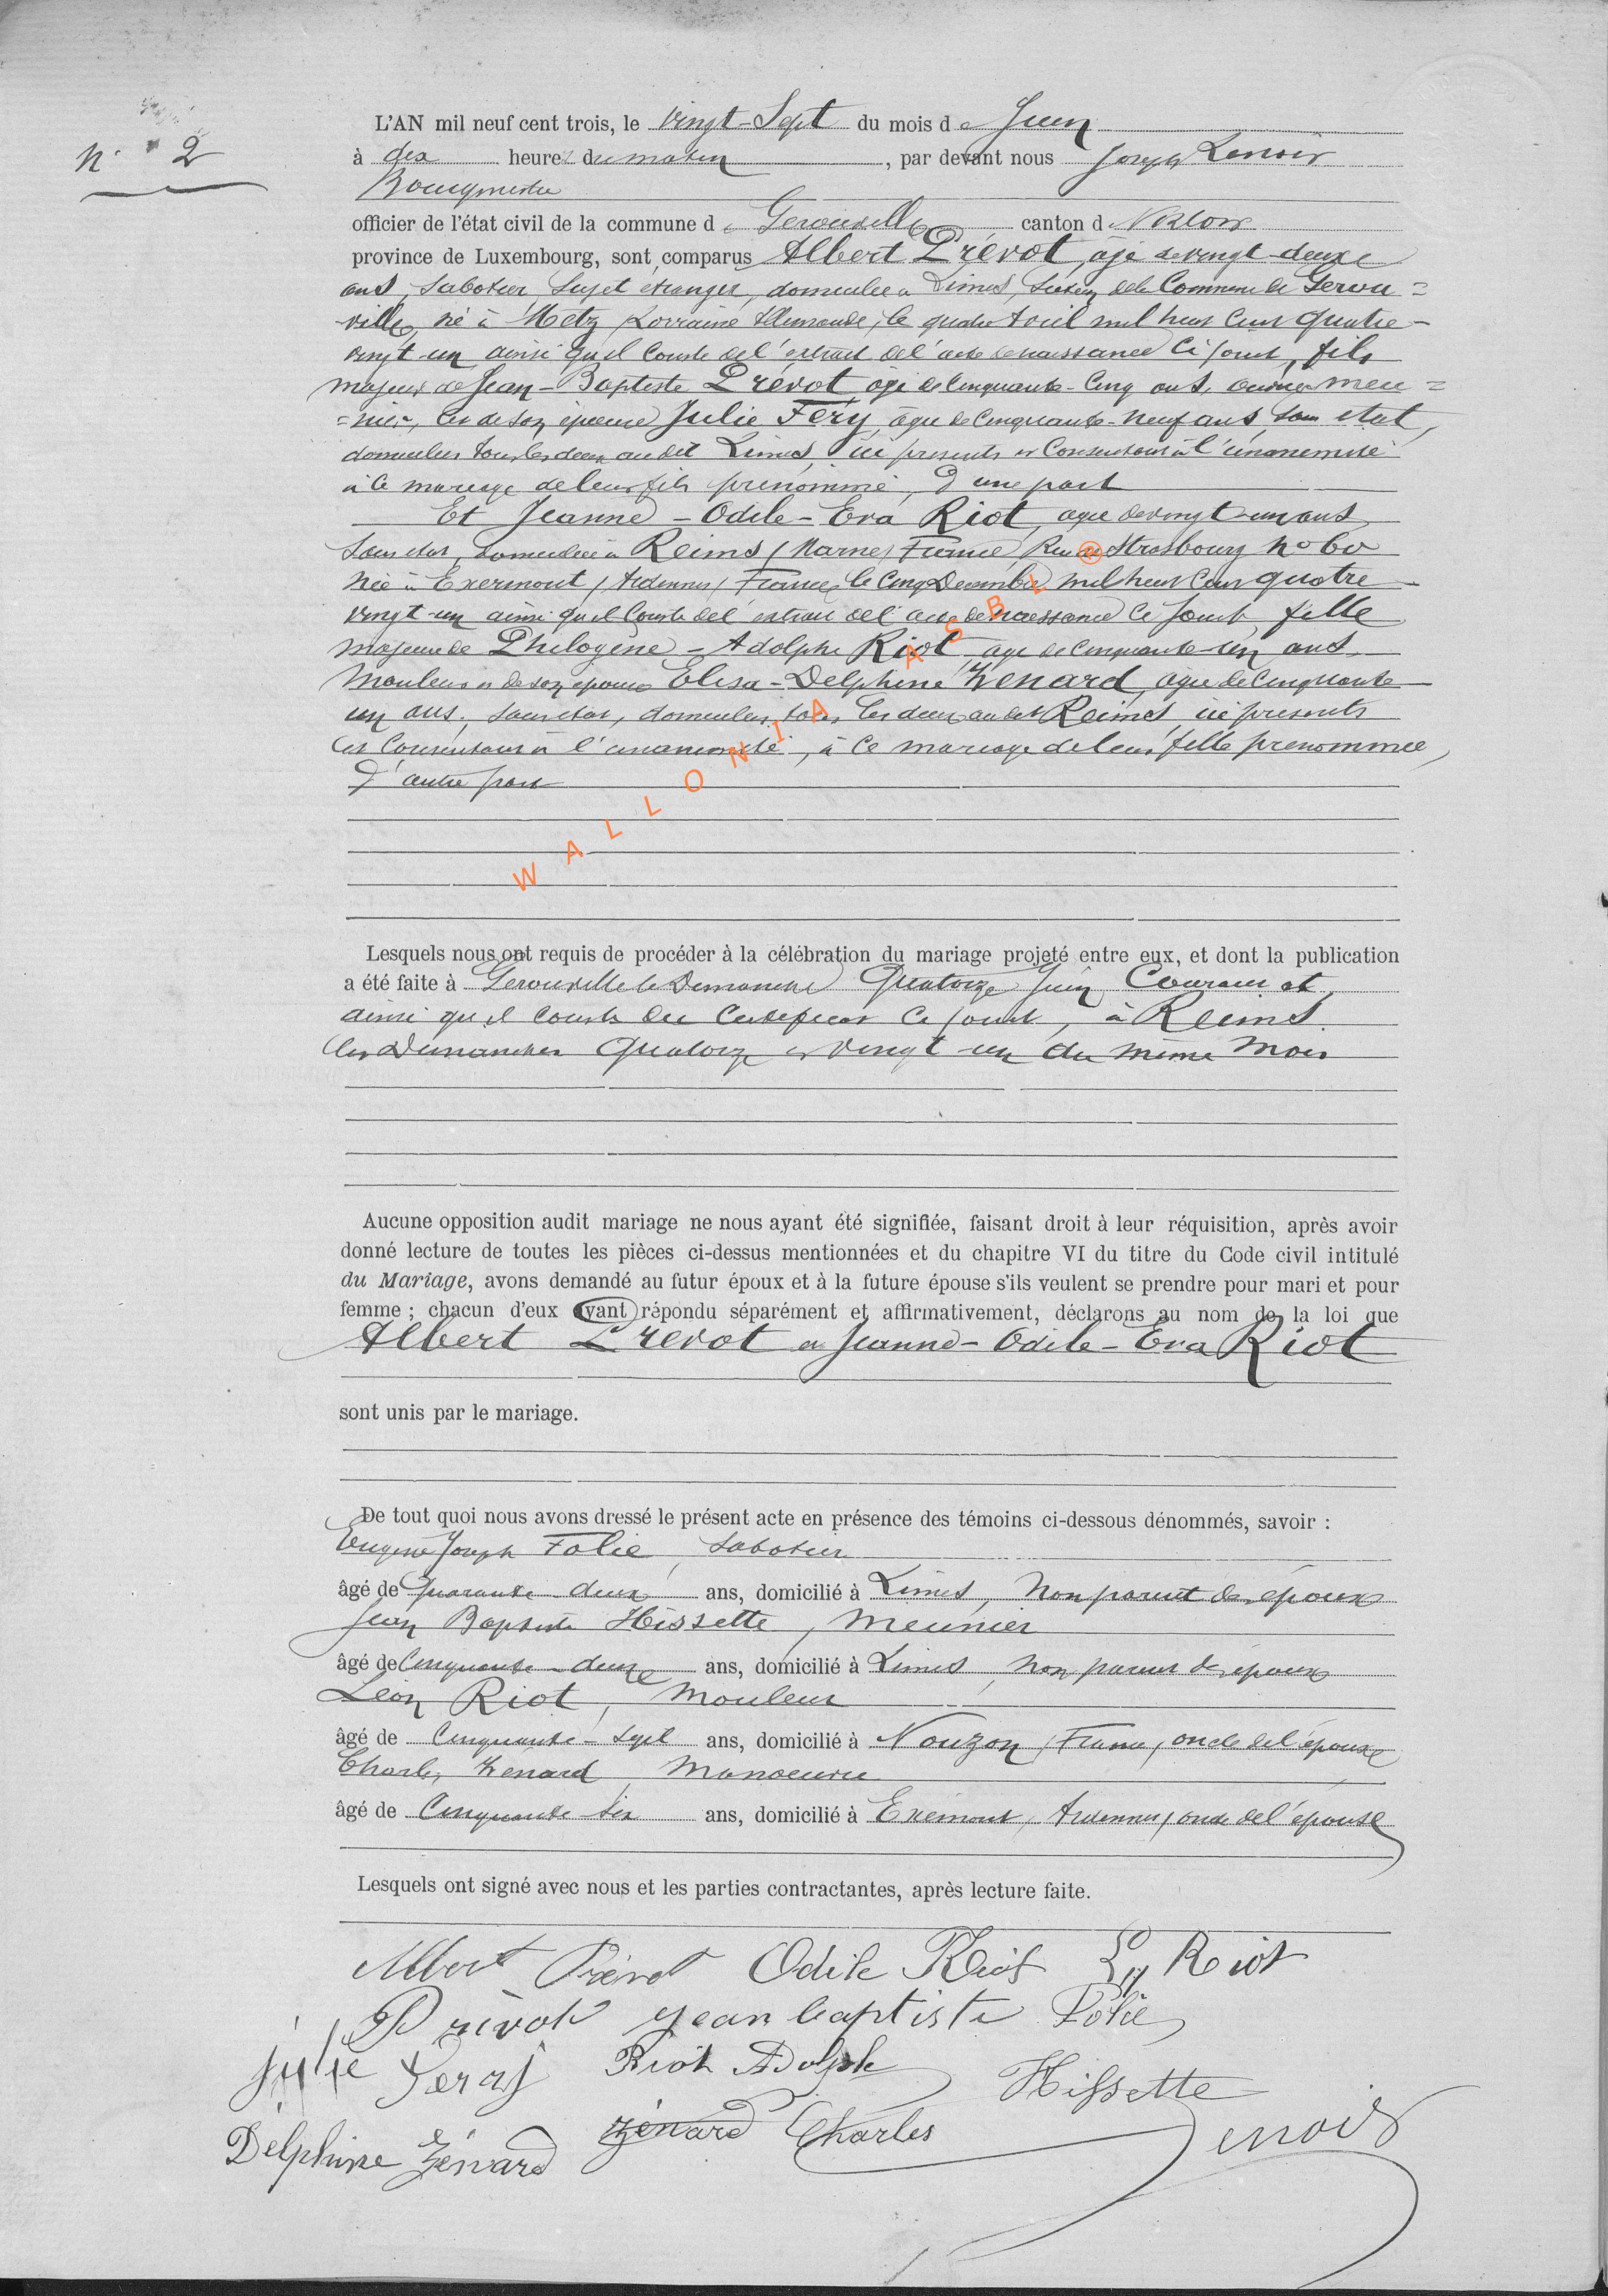 N° 2
L'AN mil neuf cent trois, le vingt-Sept du mois de Juin
à dix heures du matin, par devant nous Joseph Lenoir
Bourgmestre
officier de l'état civil de la commune de Gerouville canton de Virton
province de Luxembourg, sont comparus Albert Prévot, âgé de vingt-deux
ans, Sabotier, Sujet étranger, domicilié à Limes, Section de la Commune de Gerou=
ville, né à Metz, Lorraine Allemande, le quatre mil huit Cent quatre-
vingt-un ainsi qu'il Conste de l'extrait de l'acte de naissance Ci joint, fils
majeur de Jean-Baptiste Prévot âgé de Cinquante-Cinq ans, ouvrier meu=
=nier, et de son épouse Julie Féry, âgée de Cinquante-neuf ans sans état,
domiciliés tous les deux au dit Limes, ici présents et Consentant à l'unanimité
à Ce mariage de leur fils prénommé, D'une part
Et Jeanne-Odile-Eva Riot, âgée de vingt-un ans
Sans état, domiciliée à Reims (Marne) France, Rue de Strasbourg No 60
née à Exermont (Ardennes) France, le Cinq Décembre mil huit Cent quatre
vingt-un ainsi qu'il Conste de l'extrait de l'acte de naissance Ci Joint, fille
majeure de Philogène-Adolphe Riot âgé de Cinquante-un ans
Mouleur et de son épouse Elisa-Delphine Zénard, âgée de Cinquante
un ans, sans état, domiciliés tous les deux au dit Reims, ici présents
et Consentant à l'unanimité, à Ce mariage de leur fille prénommée,
D'autre part
WALLONIA ASBL ®
Lesquels nous ont requis de procéder à la célébration du mariage projeté entre eux, et dont la publication
a été faite à Gerouville le Dimanche Quatorze Juin Courant et
ainsi qu'il Conste du Certificat Ci joint, à Reims
les Dimanches Quatorze et Vingt-un du même Mois
Aucune opposition audit mariage ne nous ayant été signifiée, faisant droit à leur réquisition, après avoir
donné lecture de toutes les pièces ci-dessus mentionnées et du chapitre VI du titre du Code civil intitulé
du Mariage, avons demandé au futur époux et à la future épouse s'ils veulent se prendre pour mari et pour
femme ; chacun d'eux ayant répondu séparément et affirmativement, déclarons au nom de la loi que
Albert Prévot et Jeanne-Odile-Eva Riot
sont unis par le mariage.
De tout quoi nous avons dressé le présent acte en présence des témoins ci-dessous dénommés, savoir :
Eugène Joseph Folie, Sabotier
âgé de Quarante-deux ans, domicilié à Limes, Non parent des époux
Jean Baptiste Hissette, Meunier
âgé de Cinquante-deux ans, domicilié à Limes, Non parent des époux
Léon Riot, Mouleur
âgé de Cinquante-Sept ans, domicilié à Nouzon, France, oncle de l'épouse
Charles Zénard, Manoeuvre
âgé de Cinquante Six ans, domicilié à Exermont, Ardennes, oncle de l'épouse
Lesquels ont signé avec nous et les parties contractantes, après lecture faite.
Albert Prévot Odile Riot Ln Riot
Prévot jean baptiste Folie
julie Feray Riot Adolphe Hissette
Delphine Zénard Zénard Charles Lenoir